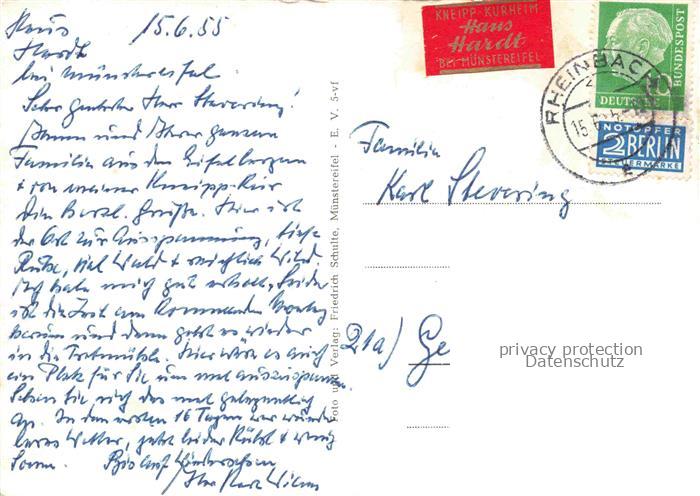 Haus 15.6.55
Hardt
bei Münstereifel
Sehr geehrter Herr Stevering!
Ihnen und Ihrer ganzen
Familie aus den Eifelbergen
+ von meiner Kneipp-Kur
die herzl. Grüße. Hier ist
der Ort zur Ausspannung, tiefe
Ruhe, viel Wald + reichlich Wild.
Ich habe mich gut erholt, leider
ist die Zeit am kommenden Montag
herum und dann geht es wieder
in die Tretmühle. Hier wäre es auch
ein Platz für Sie um mal auszuspannen.
Sehen Sie sich das mal gelegentlich
an. In den ersten 16 Tagen war wunder
bares Wetter, jetzt leider kühl + wenig
Sonne. Bis auf Wiedersehen
Ihr Karl
Foto und Verlag: Friedrich Schulte, Münstereifel - E. V. 5-vf
KNEIPP-KURHEIM
Haus
Hardt
BEI MÜNSTEREIFEL
DEUTSCHE BUNDESPOST
10
RHEINBACH
15.6.
NOTOPFER
2 BERLIN
STEUERMARKE
Familie
Karl Stevering
21a) Ge
privacy protection
Datenschutz